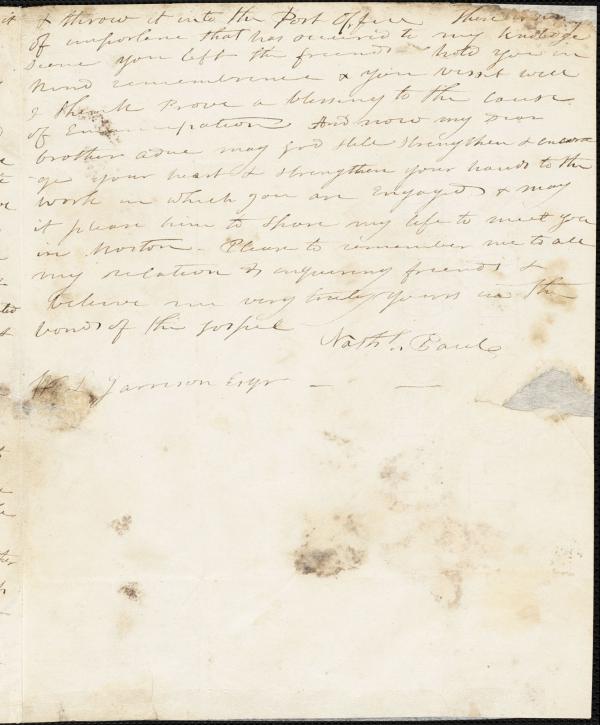 & throw it into the Post Office There is
of importane that has occurred to my knoledge
sience you left the friends hold you in
kind remembrence & your vissit will
I think Prove a blessing to the cause
of Emancipation And now my Dear
brother adue may god still strengthen & encoura
ge your heart & strengthen your hands to the
work in which you are Engaged & may
it please him to spare my life to meet you
in Boston. Please to remember me to all
my relation & enquiring friends &
beleive me very truly yours in the
bonds of the gospel
Nathl. Paul
Wm L Garrison Esqr — —